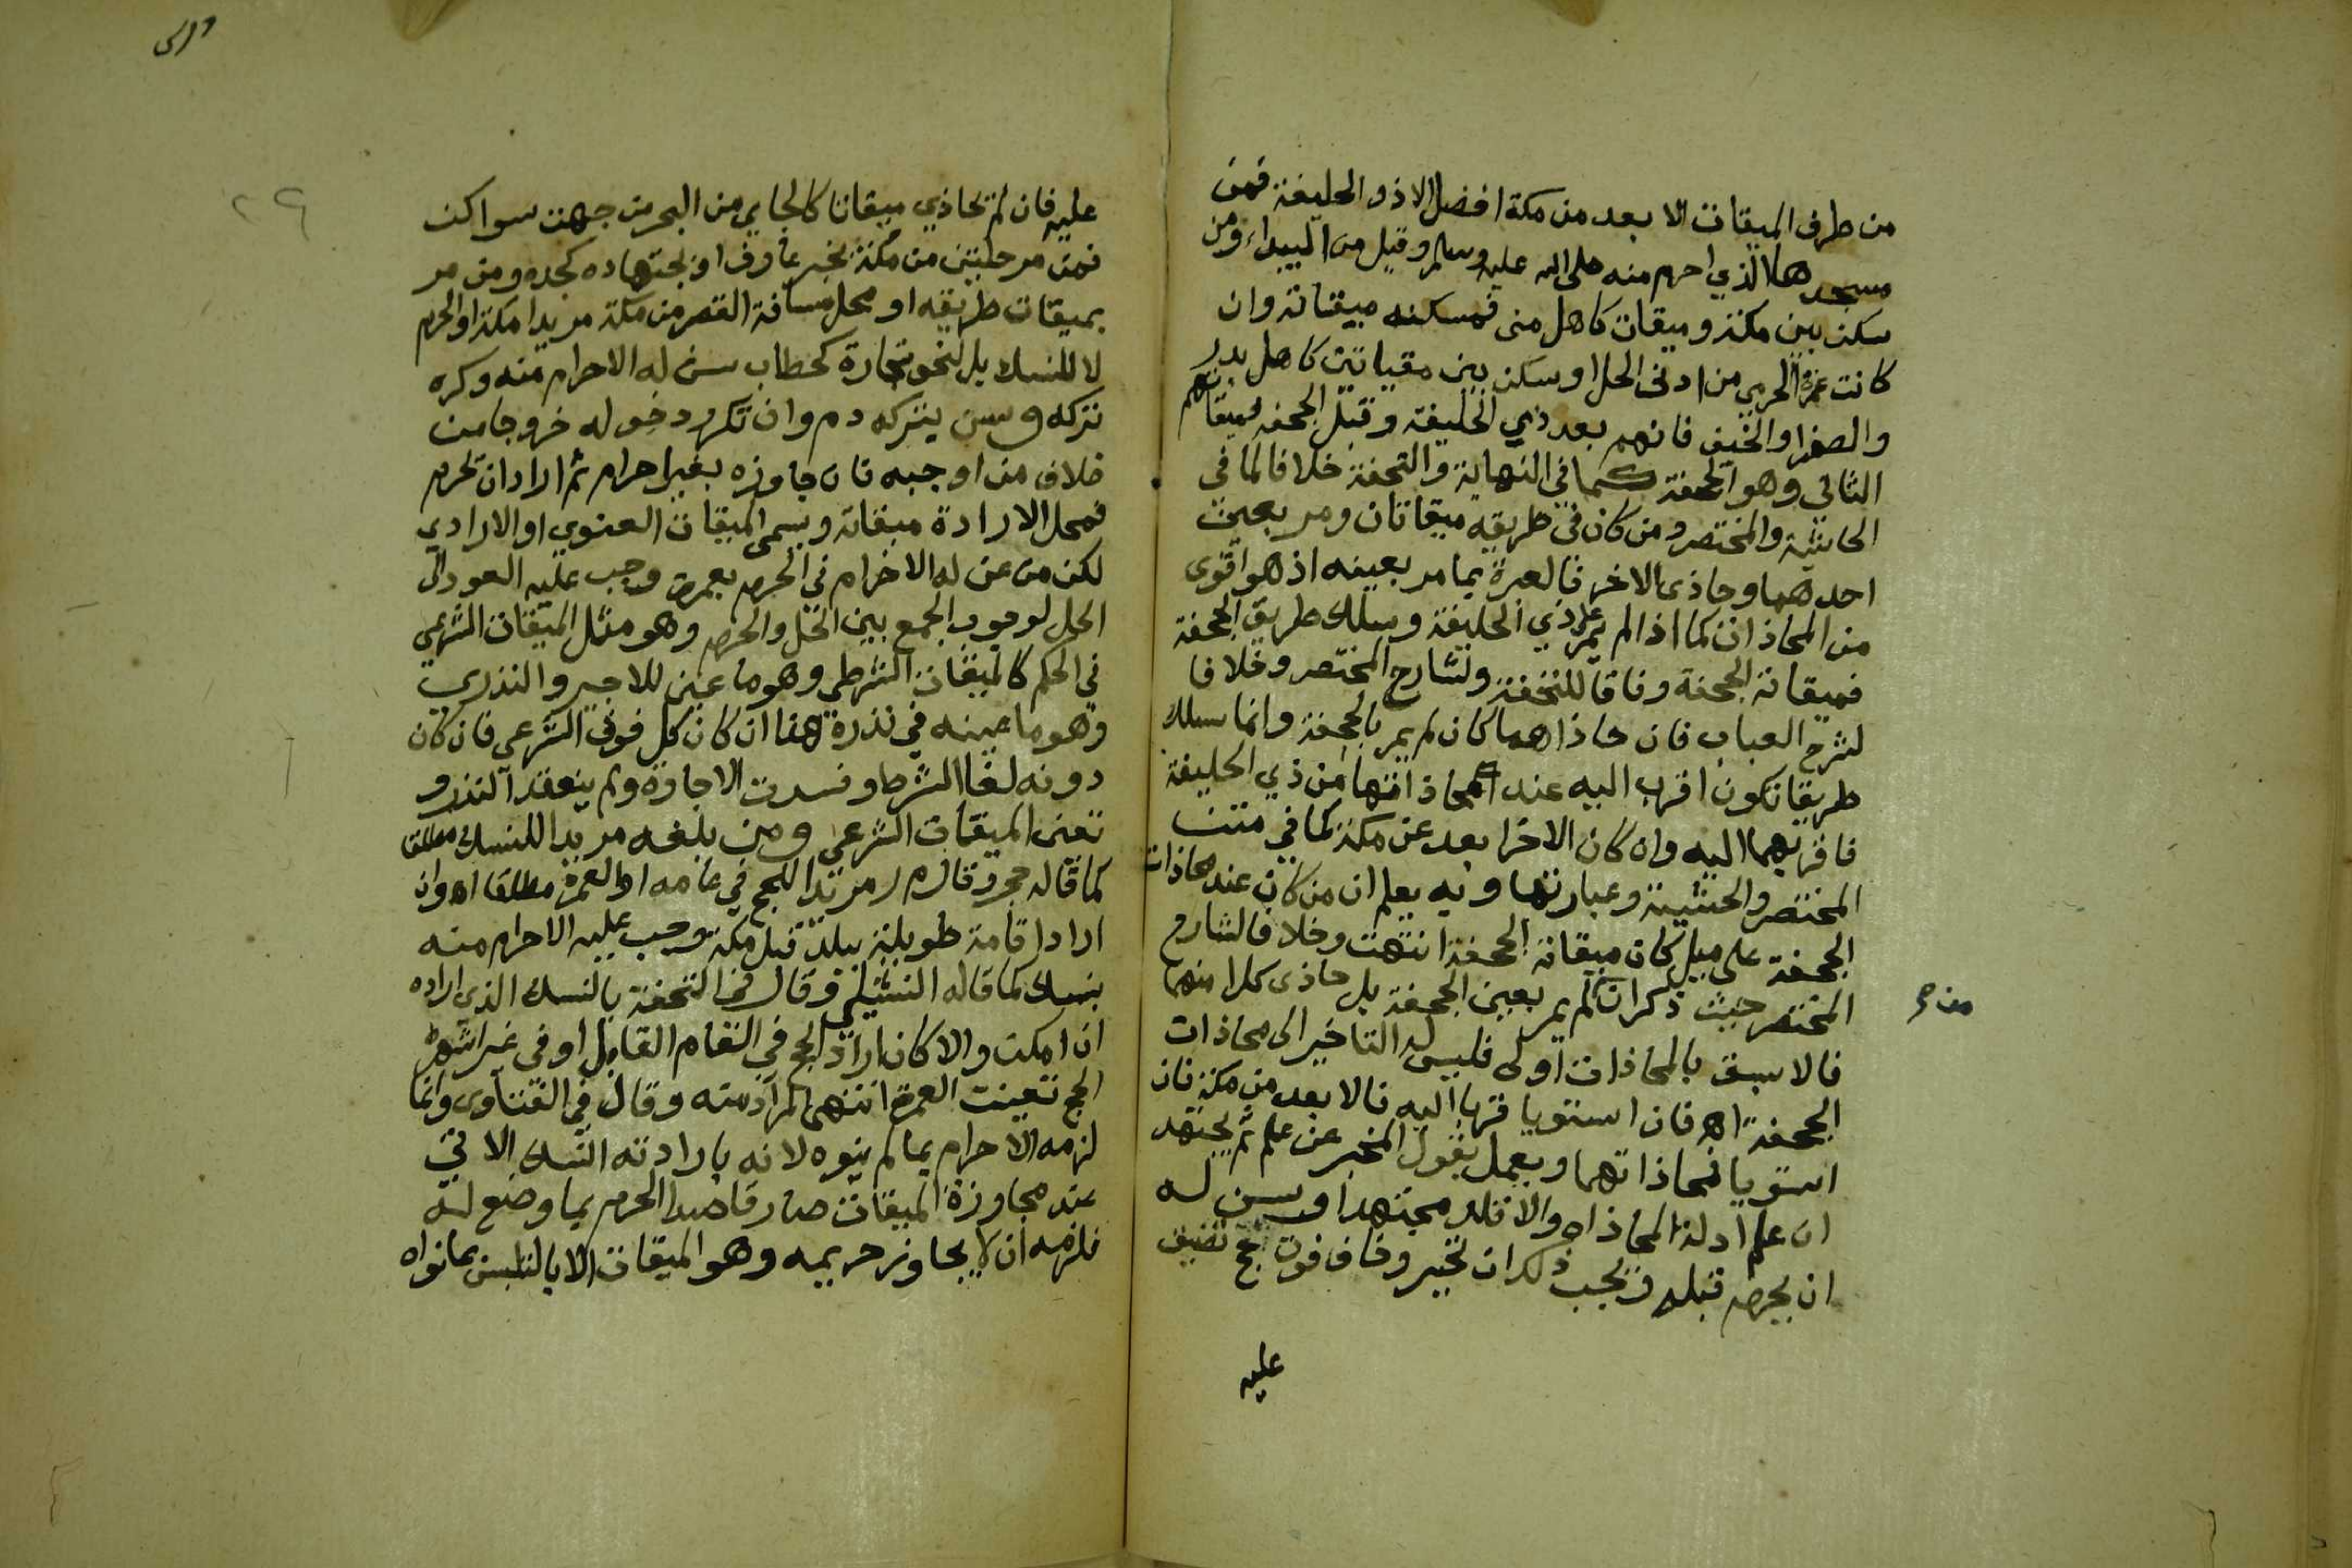 من طرف الميقات الا بعد من مكة افضل الا ذو الحليفة فمن
مسجدها الذي احرم منه صلى الله عليه وسلم وقيل من البيداء ومن
سكن بين مكة وميقات كاهل منى فمسكنه ميقاته وان
كانت عمرة الحرمي من ادنى الحل او سكن بين مقياتين كاهل بدر
والصفرا والخيف فانهم بعد ذي الحليفة وقبل الجحفه فميقاتهم
الثاني وهو الجحفة كما في النهاية والتحفة خلافا لما في
الحاشية والمختصر ومن كان في طريقه ميقاتان ومر بعين
احدهما وحاذى الاخر فالعبرة بما مر بعينه اذ هو اقوى
من المحاذات كما اذا لم يمر على ذي الحليفة وسلك طريق الجحفة
فميقاته الجحفة وفاقا للتحفة ولشارح المختصر وخلافا
لشرح العباب فان حاذاهما كان لم يمر بالجحفة وانما سلك
طريقا تكون اقرب اليه عند محاذاتها من ذي الحليفة
فاقربهما اليه وان كان الاخر ابعد عن مكة كما في متن
المختصر والحشية وعبارتها وبه يعلم ان من كان عند محاذات
الجحفة على ميل كان ميقاته الجحفة انتهت وخلافا لشارح
المختصر حيث ذكر ان لم يمر بعين الجحفة بل حاذى كلا منهما
من حر
فالاسبق بالمحاذات اولى فليس له التاخير الى محاذات
الجحفة اه فان استويا قربا اليه فالابعد من مكة فان
استويا فمحاذاتهما ويعمل بقول المخبر عن علم ثم يجتهد
ان علم ادلة المحاذاه والا قلد مجتهدا وسن له
ان يحرم قبله ويجب ذلك ان تحير وخاف فوت حج تضيق
عليه
عليه فان لم يحاذي ميقاتا كالجاي من البحر من جهت سواكن
فمن مرحلتين من مكة بخبر عارف او بجتهاده كجده ومن مر
بميقات طريقه او محل مسافة القصر من مكة مريدا مكة او الحرم
لا للنسك بل لنحو تجارة كحطاب سن له الاحرام منه وكره
تركه وسن بتركه دم وان تكرر دخوله خروجا من
خلاف من اوجبه فان جاوزه بغير احرام ثم اراد ان يحرم
فمحل الارادة ميقاته ويسمى الميقات العنوي او الارادي
لكن من عن له الاحرام في الحرم بعمرة وجب عليه العود الى
الحل لوجوب الجمع بين الحل والحرم وهو مثل الميقات الشرعي
في الحكم كالميقات الشرطي وهو ما عين للاجير والنذري
وهو ما عينه في نذره هذا ان كان كل فوق الشرعي فان كان
دونه لغا الشرط وفسدت الاجارة ولم ينعقد النذر و
تعين الميقات الشرعي ومن بلغه مريدا للنسك مطلقا
كما قاله حجر وقال م ر مريدا للحج في عامه او العمرة مطلقا اه وان
اراد اقامة طويلة ببلد قبل مكة وجب عليه الاحرام منه
بنسك كما قاله الشبلي وقال في التحفة بالنسك الذي اراده
ان امكن والا كان اراد الحج في العام القابل او في غير اشهر
الحج تعينت العمرة انتهى المراد منه وقال في الفتاوى وانما
لزمه الاحرام بما لم ينوه لانه بارادته النسك الاتي
عند مجاوزة الميقات صار قاصدا الحرم بما وضع له
فلزمه ان لا يجاوز حريمه وهو الميقات الا بالتلبس بما نواه